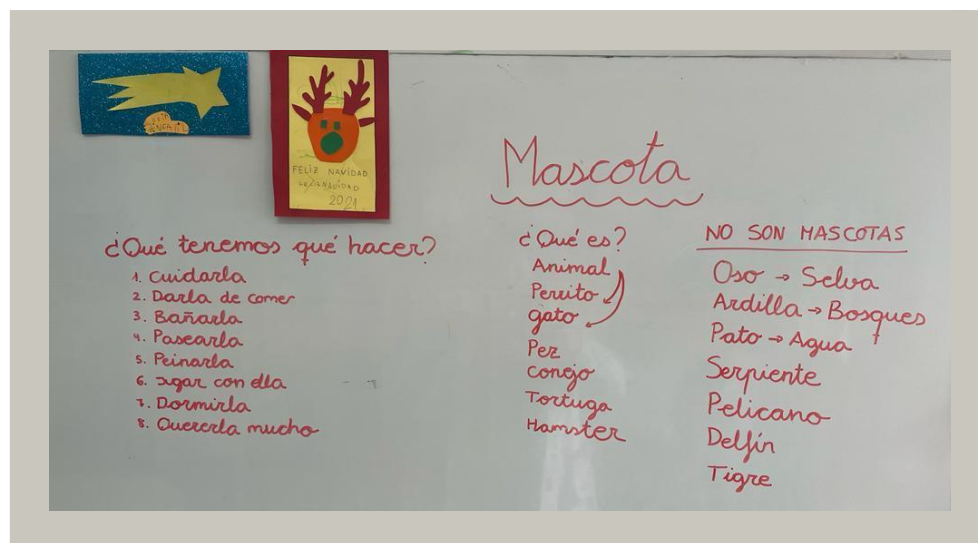 FELIZ NAVIDAD
2021
Mascota
¿Qué tenemos qué hacer?
1. Cuidarla
2. Darla de comer
3. Bañarla
4. Pasearla
5. Peinarla
6. Jugar con ella
7. Dormirla
8. Quererla mucho
¿Qué es?
Animal
Perrito
gato
Pez
Conejo
Tortuga
Hamster
NO SON MASCOTAS
Oso → Selva
Ardilla → Bosques
Pato → Agua
Serpiente
Pelicano
Delfín
Tigre